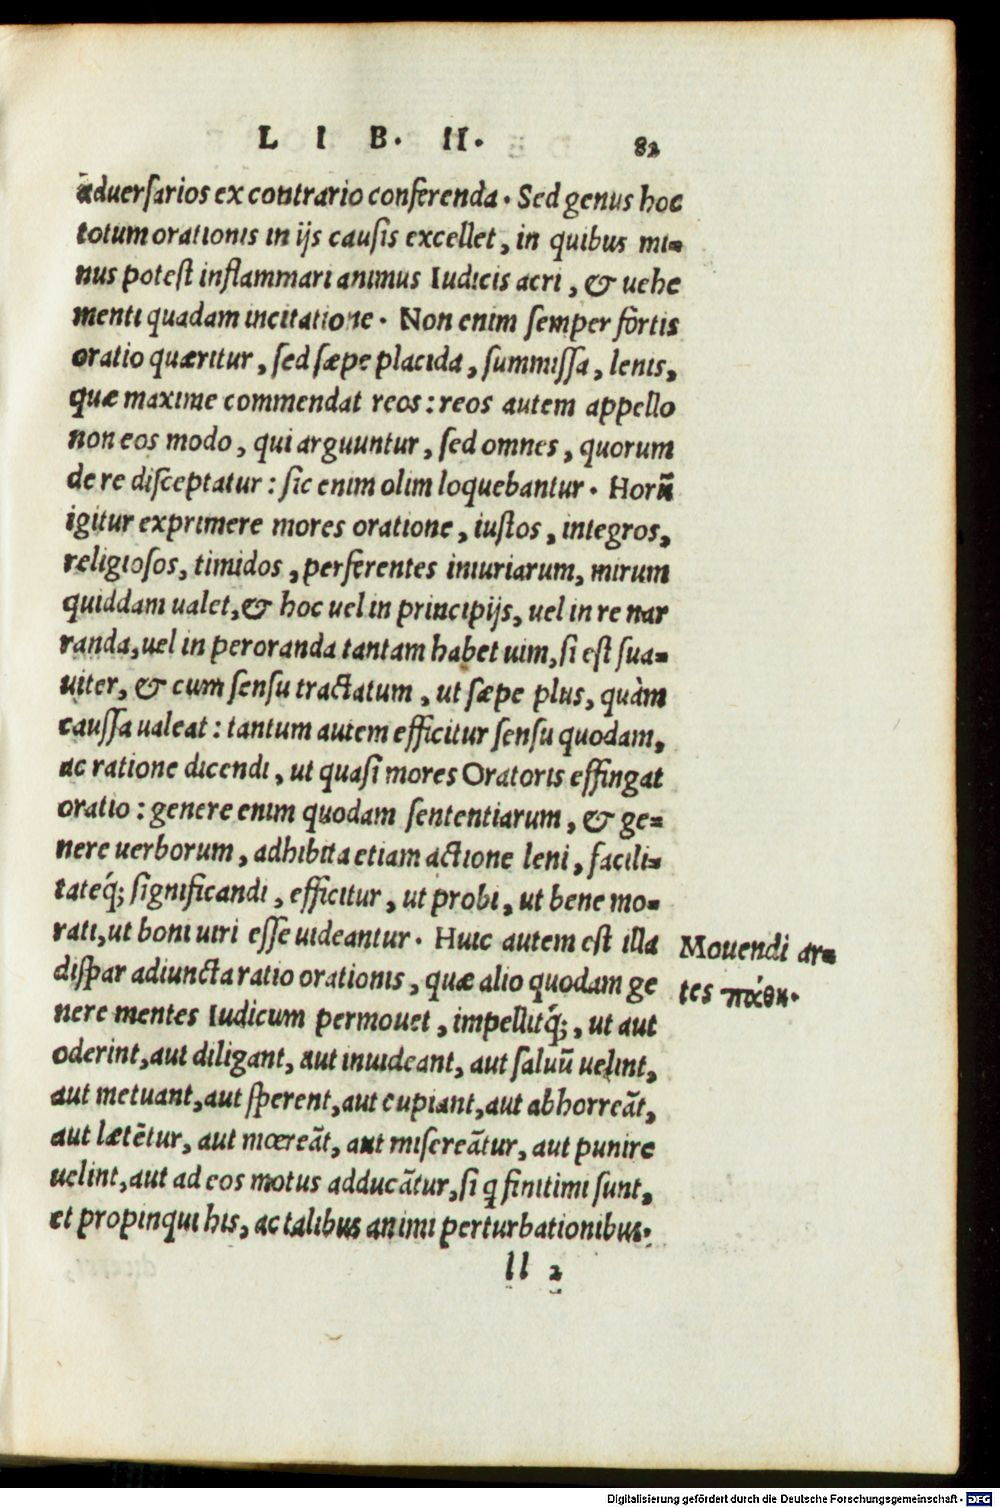 LIB. II. 82
aduersarios ex contrario conferenda. Sed genus hoc
totum orationis in ijs causis excellet, in quibus mi=
nus potest inflammari animus Iudicis acri, & uehe
menti quadam incitatione. Non enim semper fortis
oratio quæritur, sed sæpe placida, summissa, lenis,
quæ maxime commendat reos: reos autem appello
non eos modo, qui arguuntur, sed omnes, quorum
de re disceptatur: sic enim olim loquebantur. Horũ
igitur exprimere mores oratione, iustos, integros,
religiosos, timidos, perferentes iniuriarum, mirum
quiddam ualet, & hoc uel in principijs, uel in re nar
randa, uel in peroranda tantam habet uim, si est sua=
uiter, & cum sensu tractatum, ut sæpe plus, quàm
caussa ualeat: tantum autem efficitur sensu quodam,
ac ratione dicendi, ut quasi mores Oratoris effingat
oratio: genere enim quodam sententiarum, & ge=
nere uerborum, adhibita etiam actione leni, facili=
tateq́; significandi, efficitur, ut probi, ut bene mo=
rati, ut boni uiri esse uideantur. Huic autem est illa
dispar adiuncta ratio orationis, quæ alio quodam ge
nere mentes Iudicum permouet, impellitq́;, ut aut
oderint, aut diligant, aut inuideant, aut saluũ uelint,
aut metuant, aut sperent, aut cupiant, aut abhorreãt,
aut lætẽtur, aut mœreãt, aut misereãtur, aut punire
uelint, aut ad eos motus adducãtur, si q finitimi sunt,
et propinqui his, ac talibus animi perturbationibus.
ll 2
Mouendi ar=
tes πάθη.
Digitalisierung gefördert durch die Deutsche Forschungsgemeinschaft - DFG